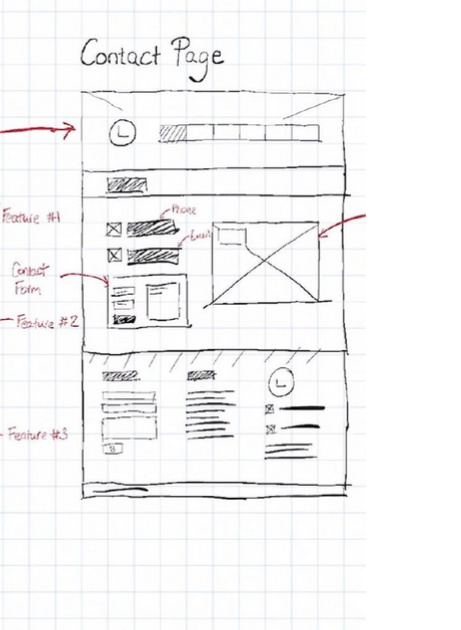 Contact Page
L
Feature #1
Phone
Email
Contact
Form
Feature #2
L
Feature #3